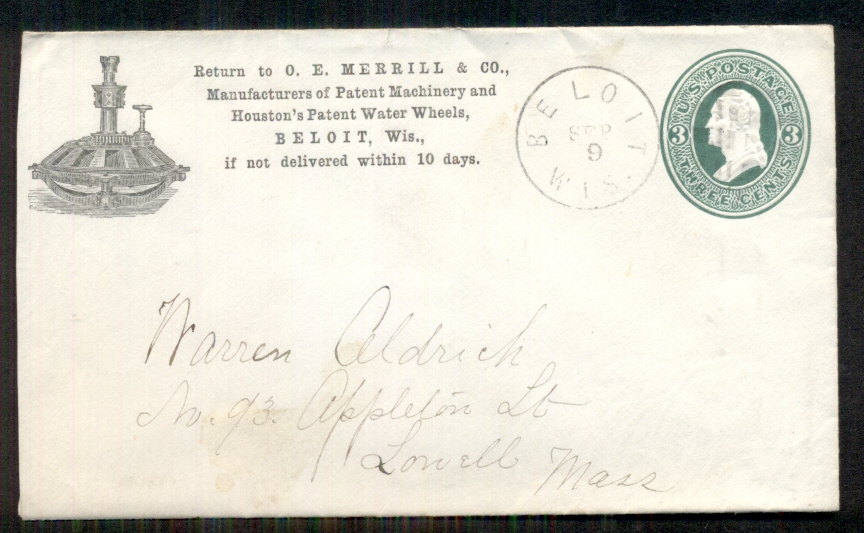 Return to O. E. MERRILL & CO.,
Manufacturers of Patent Machinery and
Houston's Patent Water Wheels,
BELOIT, Wis.,
if not delivered within 10 days.
BELOIT
SEP
9
WIS.
U.S. POSTAGE
3 3
THREE CENTS
Warren Aldrich
No. 93. Appleton St
Lowell Mass